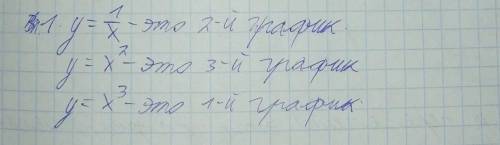 №1. y = 1/x - это 2-й график.
y = x² - это 3-й график
y = x³ - это 1-й график.